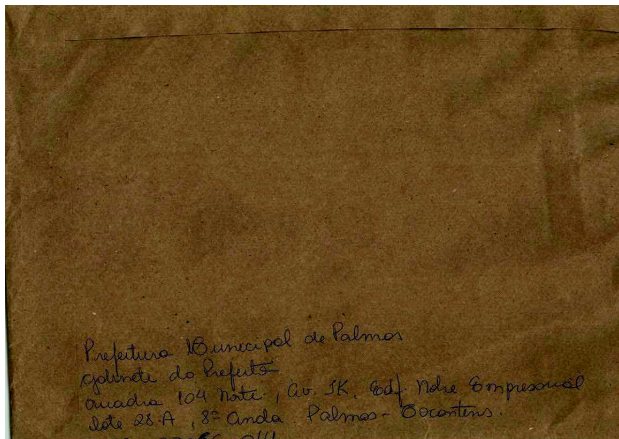 Prefeitura Municipal de Palmas
gabinete do Prefeito
quadra 104 Norte, av. JK, Edif. Nobre Empresarial
lote 28.A, 8º Anda Palmas - Tocantins.